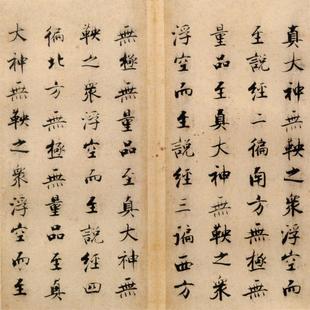 真大神無鞅之衆浮空而
至說經二徧南方無極無
量品至真大神無鞅之衆
浮空而至說經三徧西方
無極無量品至真大神無
鞅之衆浮空而至說經四
徧北方無極無量品至真
大神無鞅之衆浮空而至